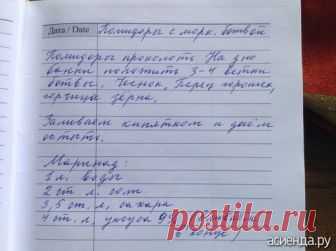 Дата / Date Помидоры с морк. ботвой
Помидоры проколоть. На дно
банки положить 3-4 ветки
ботвы. Чеснок, перец горошек,
горчица зерна.
Заливаем кипятком и даём
остыть.
Маринад:
1 л. воды
2 ст. л. соли
3,5 ст. л. сахара
4 ст. л. уксуса 9%
конце
Postila.ru
асиенда.ру